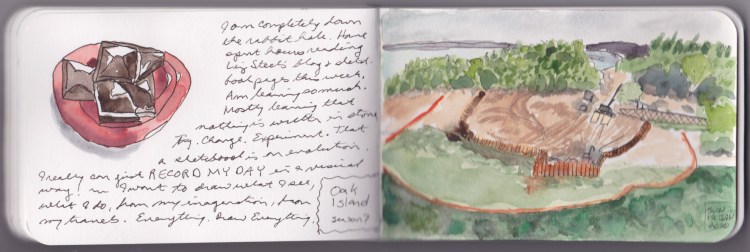 I am completely down
the rabbit hole. Have
spent hours reading
Liz Steel's blog & sketch
book pages this week.
Am learning so much.
Mostly learning that
nothing is written in stone
Try. Change. Experiment. That
a sketchbook is an evolution.
I really can just RECORD MY DAY in a visual
way. I want to draw what I see,
what I do, from my imagination, from
my travels. Everything. Draw Everything.
Oak
Island
season 9